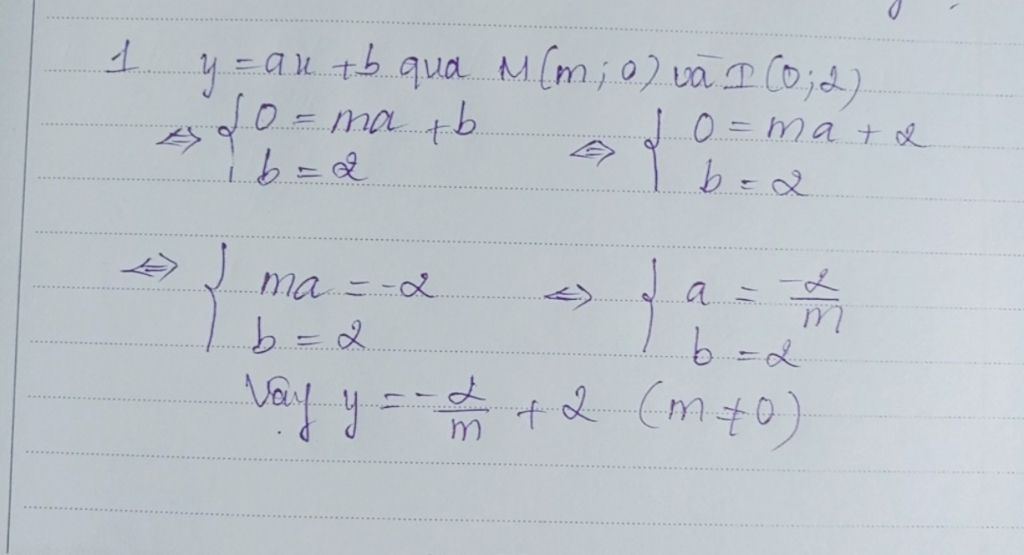 1 y = ax + b qua M(m; 0) và I(0; 2)
⇔ { 0 = ma + b ⇔ { 0 = ma + 2
b = 2 b = 2
⇔ { ma = -2 ⇔ { a = -2/m
b = 2 b = 2
Vậy y = -2/m + 2 (m ≠ 0)